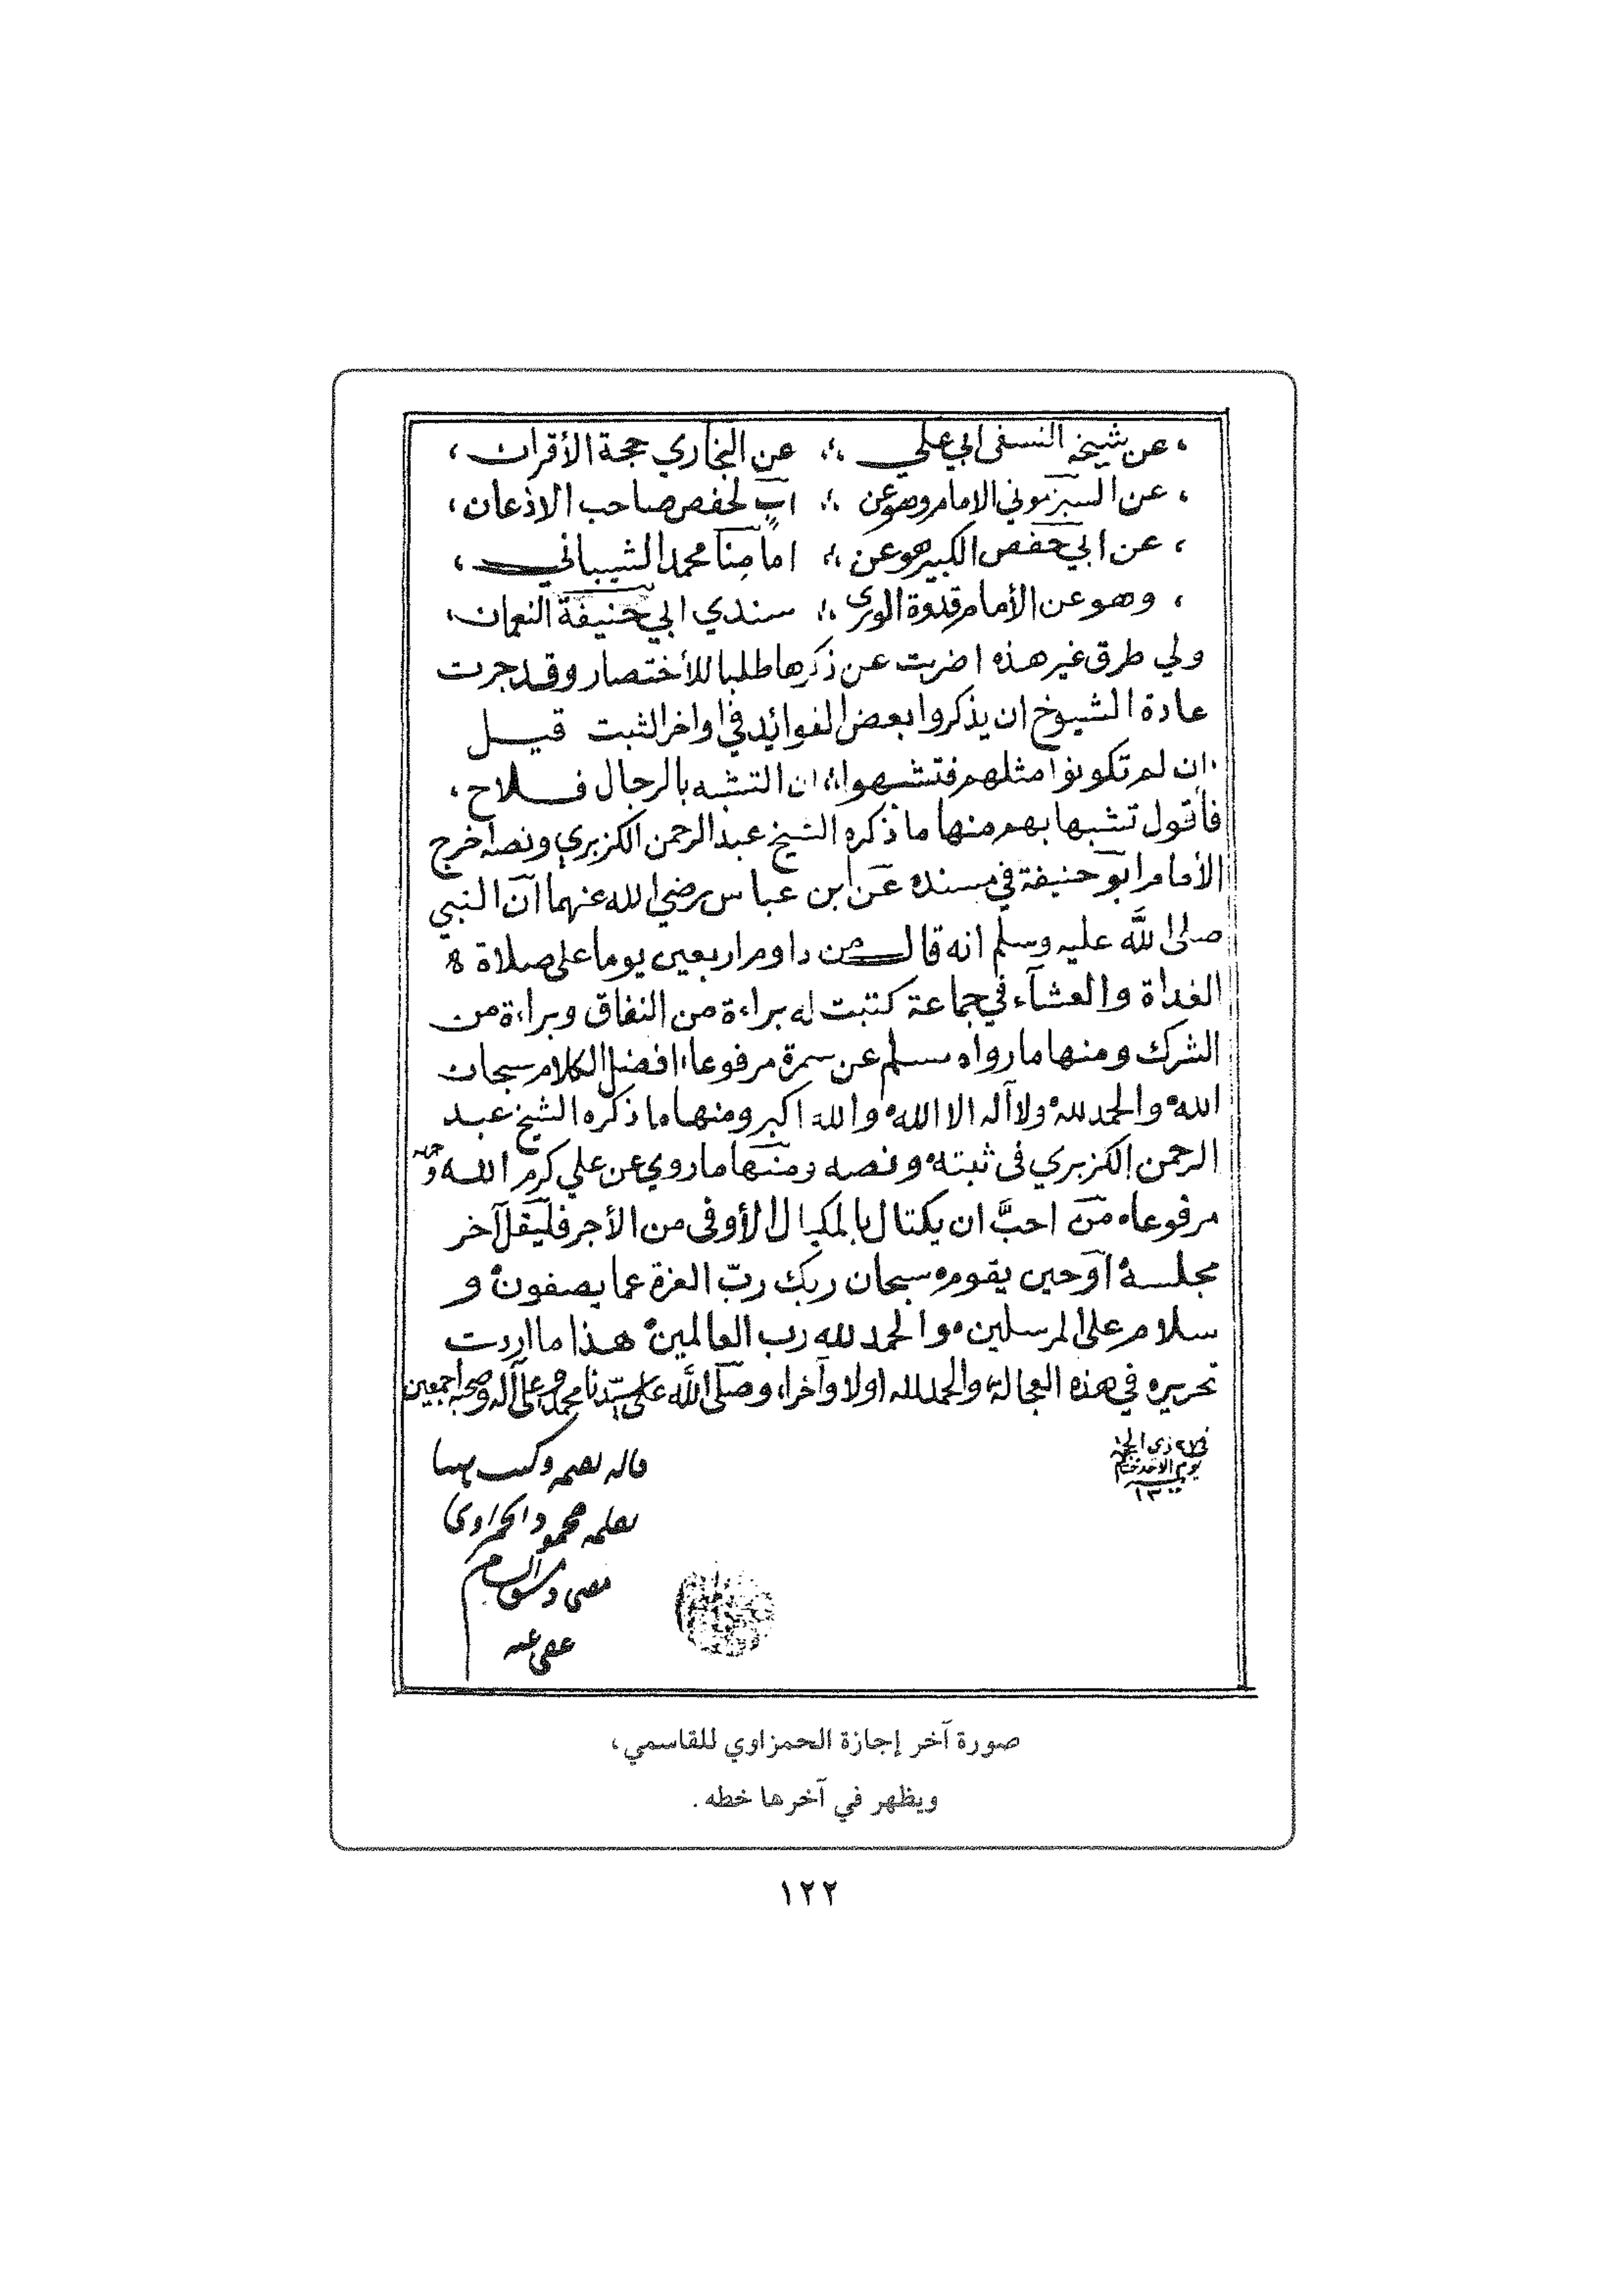 ، عن شيخه النسفى ابي علي ؛ عن البخاري حجة الأقران ،
، عن السبزموني الامام وهو عن ؛ اب لحفص صاحب الاذعان ،
، عن ابي حفص الكبير هو عن ؛ امامنا محمد الشيباني ،
، وهو عن الأمام قدوة الورى ؛ سندي ابي حنيفة النعمان ،
ولي طرق غير هذه اضربت عن ذكرها طلبا للأختصار وقد جرت
عادة الشيوخ ان يذكروا بعض الفوائد في اواخر الثبت قيل
، ان لم تكونوا مثلهم فتشبهوا ؛ ان التشبه بالرجال فلاح ،
فأقول تشبها بهم منها ما ذكره الشيخ عبد الرحمن الكزبري ونصه اخرج
الأمام ابو حنيفة في مسنده عن ابن عباس رضي الله عنهما ان النبي
صلى الله عليه وسلم انه قال من داوم اربعين يوما على صلاة
الغداة والعشآء في جماعة كتبت له براءة من النفاق وبراءة من
الشرك ومنها ما رواه مسلم عن سمرة مرفوعا افضل الكلام سبحان
الله والحمد لله ولا آله الا الله والله اكبر ومنها ما ذكره الشيخ عبد
الرحمن الكزبري فى ثبته ونصه ومنها ما روي عن علي كرم الله وجهه
مرفوعا من احبَّ ان يكتال بالمكيال الأوفى من الأجر فليقل آخر
مجلسه او حين يقوم سبحان ربك ربّ العزة عما يصفون و
سلام على المرسلين والحمد لله رب العالمين هذا ما اردت
تحريره في هذه العجالة والحمد لله اولا وآخرا وصلى الله على سيّدنا محمد وعلى آله وصحبه اجمعين
ذي الحجة
يوم الاحد
قاله بفمه وكتب
بقلمه محمود الحمزاوى
مفتى دمشق الشام
عفي عنه
صورة آخر إجازة الحمزاوي للقاسمي،
ويظهر في آخرها خطه .
١٢٢